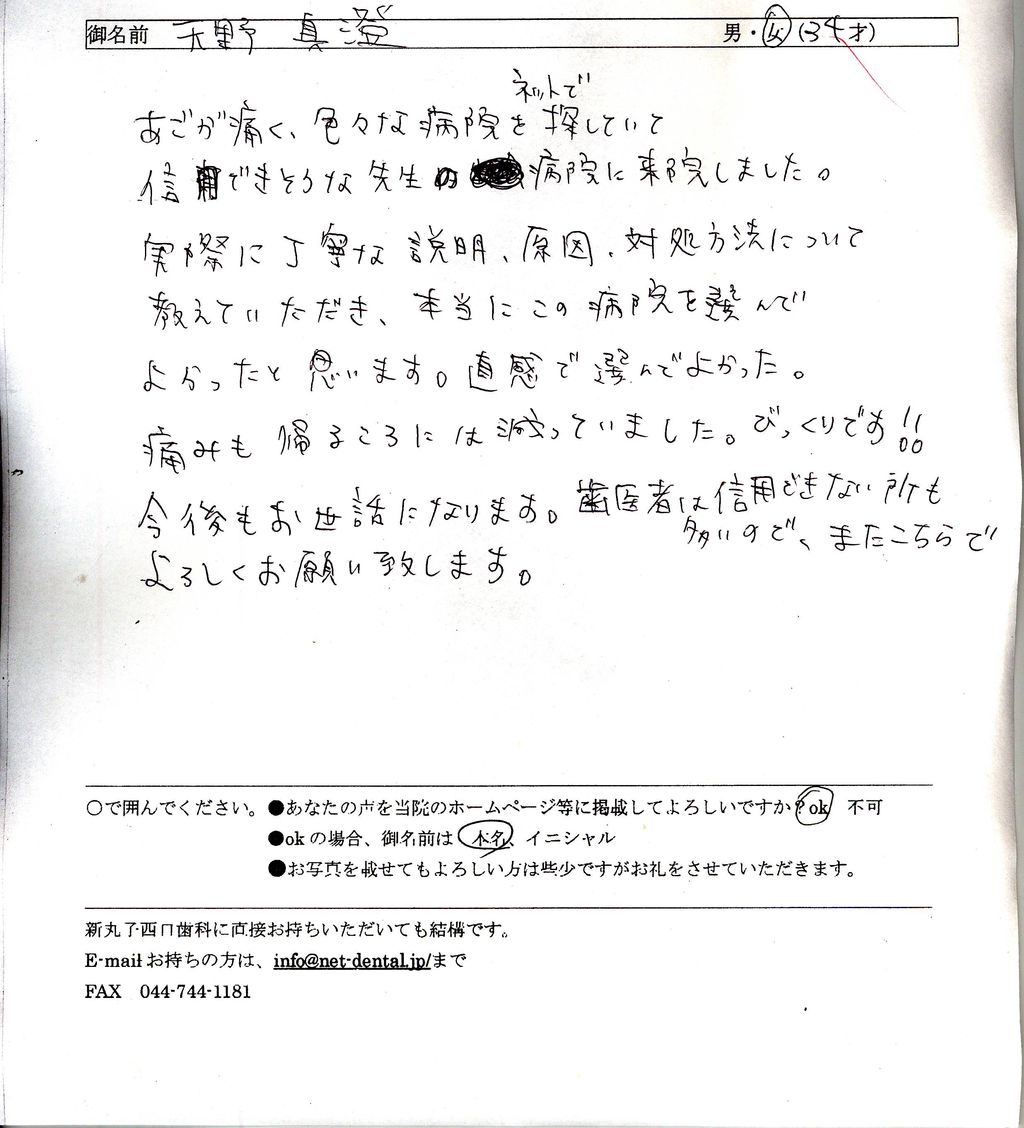 御名前 天野 真澄 男・女 (34才)
ネットで
あごが痛く、色々な病院を探していて
信用できそうな先生の病院に来院しました。
実際に丁寧な説明、原因、対処方法について
教えていただき、本当にこの病院を選んで
よかったと思います。直感で選んでよかった。
痛みも帰るころには減っていました。びっくりです!!
今後もお世話になります。歯医者は信用できない所も
多いので、またこちらで
よろしくお願い致します。
〇で囲んでください。●あなたの声を当院のホームページ等に掲載してよろしいですか?ok 不可
●okの場合、御名前は 本名、イニシャル
●お写真を載せてもよろしい方は些少ですがお礼をさせていただきます。
新丸子西口歯科に直接お持ちいただいても結構です。
E-mailお持ちの方は、info@net-dental.jp/まで
FAX 044-744-1181